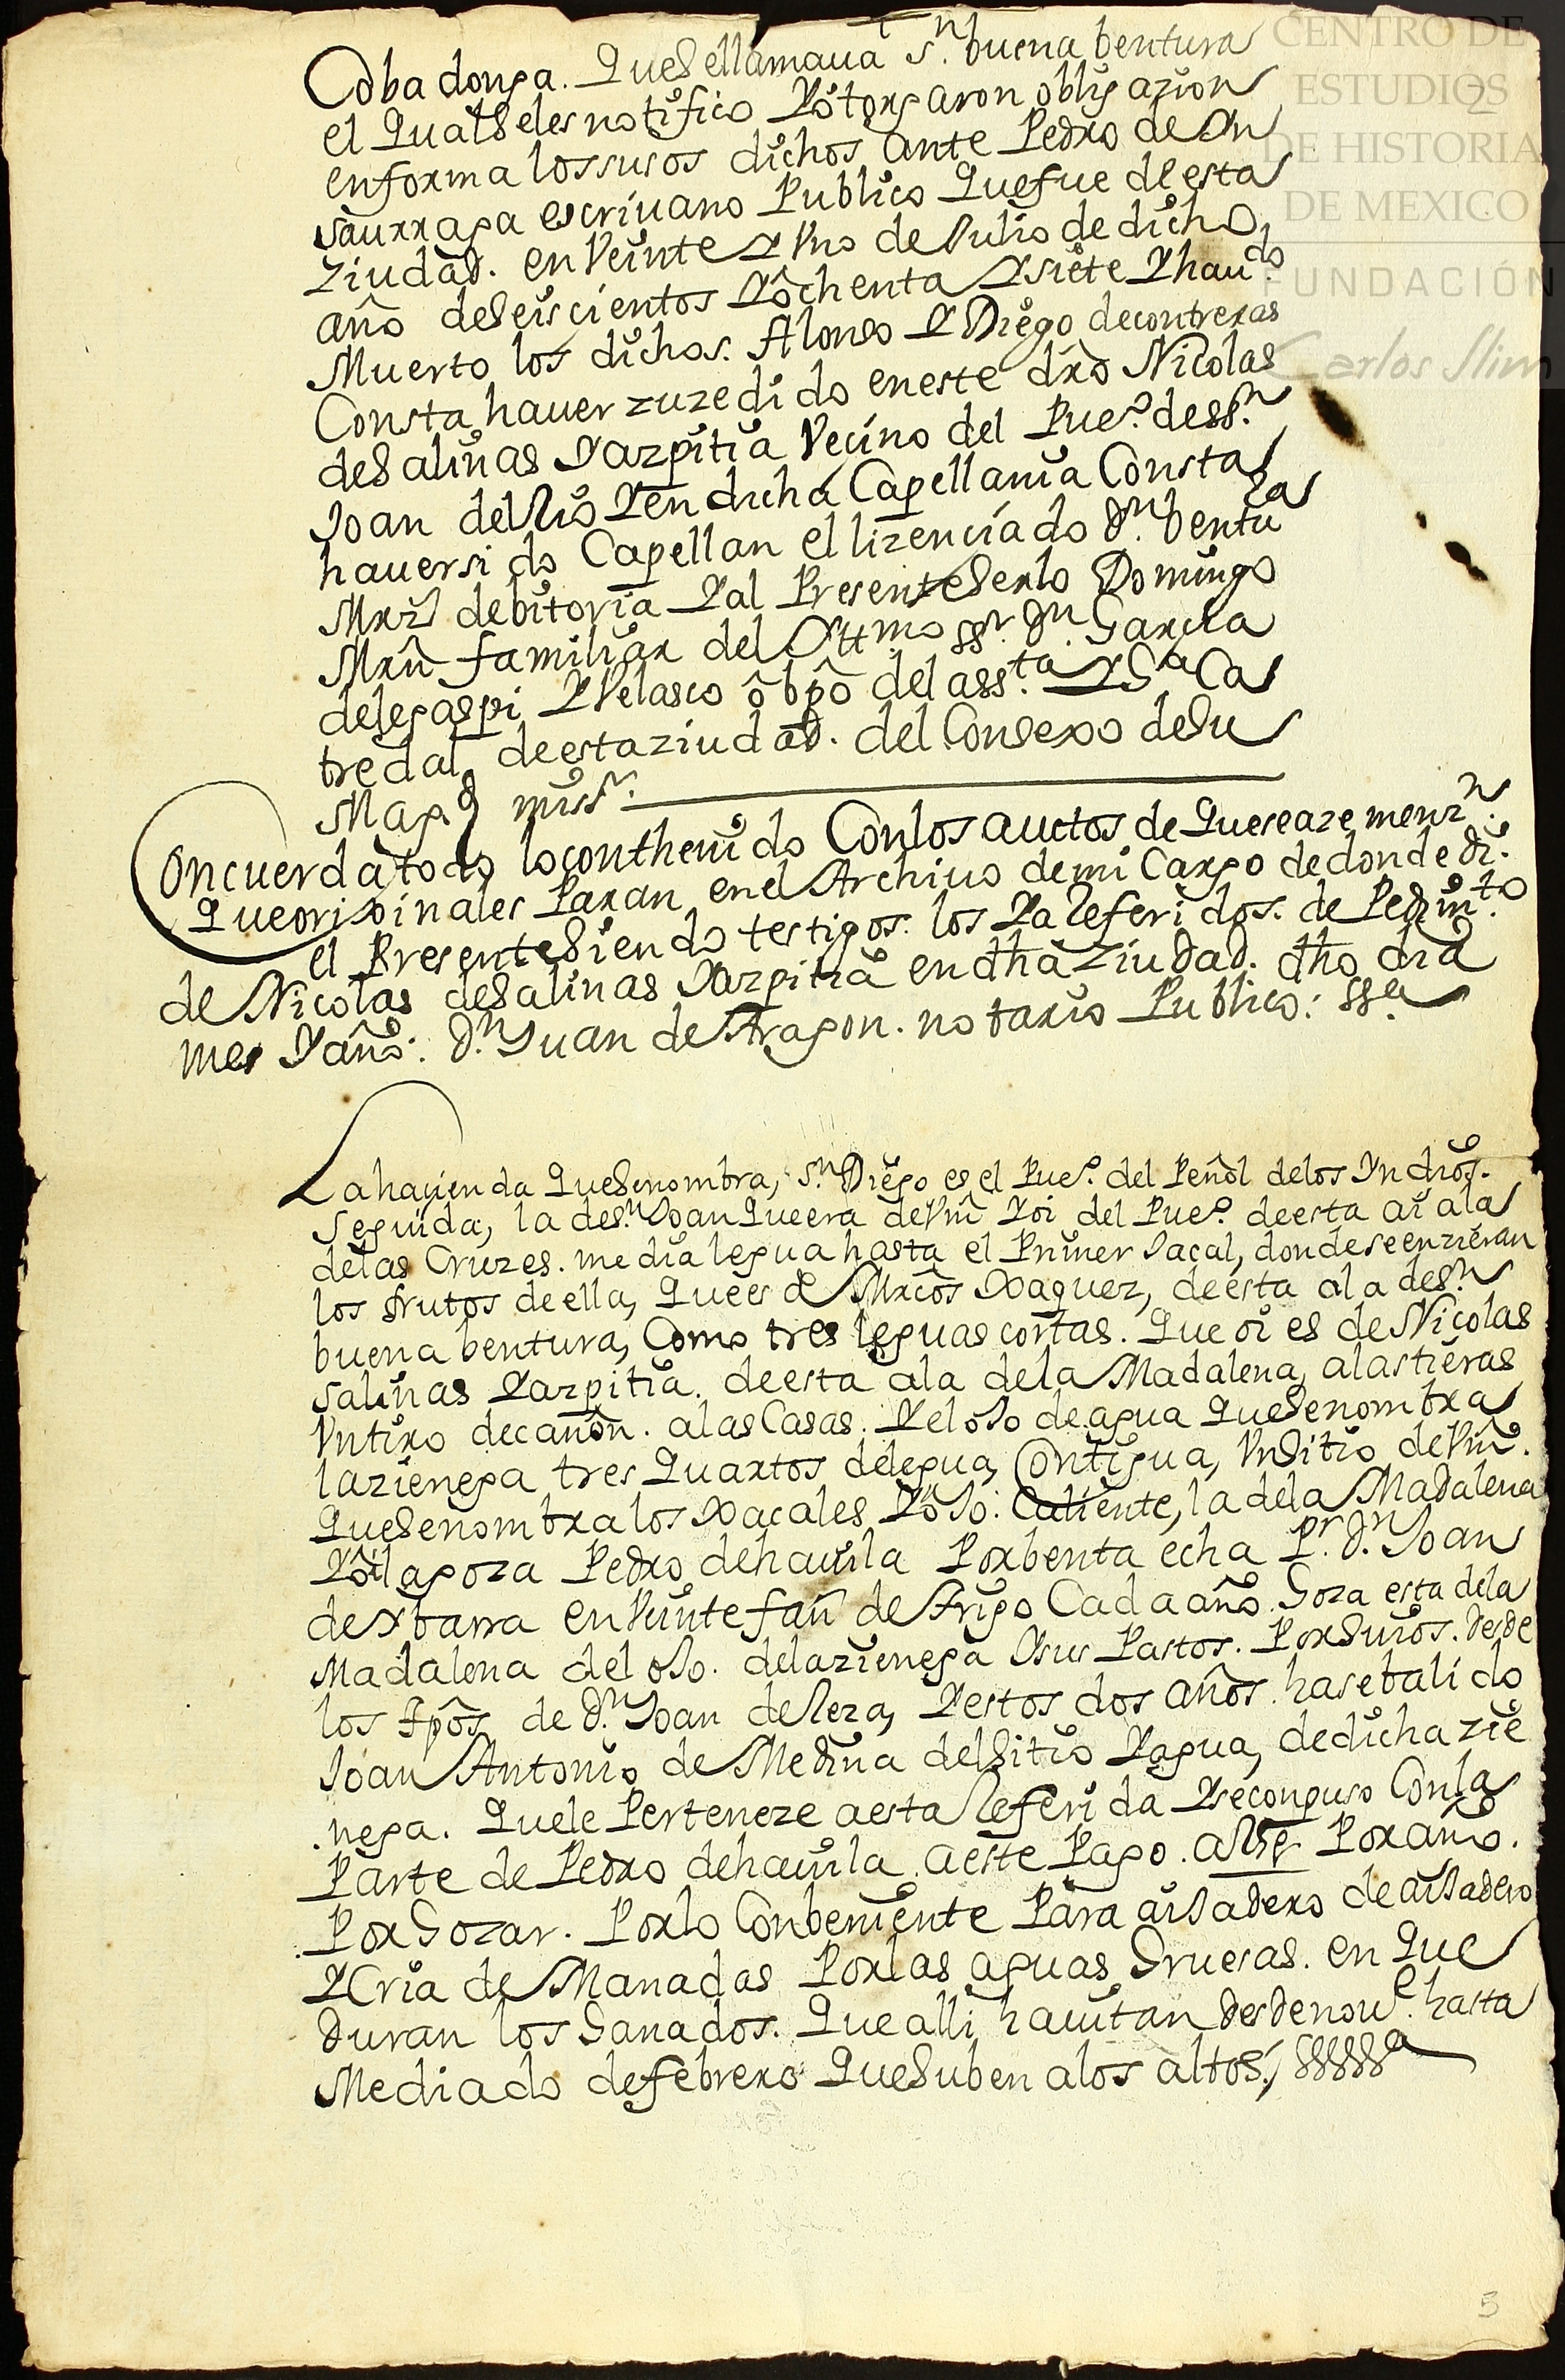 Cobadonga. Que se llamaua Sn. buena bentura
el qual se les notifico Y otorgaron obligazion
en forma los susos dichos ante Pedro de An
saurraga escriuano Publico Que fue de esta
ziudad. en Veinte Y Uno de Julio de dicho
año de seiscientos Y ochenta Y siete Y haudo
Muerto los dichos. Alonso Y Diego de contreras
Consta hauer zuzedido en este dro Nicolas
de Salinas Yazpitia Vecino del Pueo. de Sn.
Joan del Rio Y en dicha Capellania Consta
hauer sido Capellan el lizenciado Dn. bentura
Mrz de bitoria Y al Presente serlo Domingo
Mrn familiar del Yttmo ssr. Dn. Garcia
de legaspi Y Velasco obpo del assta. Y Sa Ca
tredal de esta ziudad. del Consexo de Su
Magd
Concuerda todo lo contthenido Con los auctos de Que se aze menzn.
Que orijinales Paran en el Archiuo de mi Cargo de donde di.
el Presente Siendo testigos. los Ya Referidos. de Pedimto.
de Nicolas de Salinas Yazpitia en dha ziudad. dho dia
mes Y año: Dn. Juan de Aragon. notario Publico:
La hazienda Que Se nombra, Sn. Diego es el Pueo. del Peñol de los Yndios.
Seguida, la de Sn. Joan Que era de Vm Y oi del Pueo. de esta ai a la
de las Cruzes. media legua hasta el Primer Jacal, donde se enzieran
los frutos de ella, Que es de Mrcos Xaquez, de esta a la de Sn.
buena bentura, Como tres leguas cortas. Que oi es de Nicolas
Salinas Yazpitia. de esta a la de la Madalena, a las tieras
Un tiro de cañon. a las Casas. Y el oJo de agua Que Se nombra
la zienega tres Quartos de legua, Contigua, Un Sitio de Vm.
Que Se nombra los Xacales Y oJo: Caliente, la de la Madalena
Y oi la goza Pedro de hauila Por benta echa Pr. Dn. Joan
de Ybarra en Veinte fan de trigo Cada año. Goza esta de la
Madalena del oJo. de la zienega Y sus Pastos. Por Suios. desde
los tpos de Dn. Joan de Reza, Y estos dos años. has e balido
Joan Antonio de Medina del Sitio Y agua, de dicha zie
nega. Que le Perteneze a esta Referida Y se conpuso Con la
Parte de Pedro de hauila. a este Pago. Por año.
Por Gozar. Por lo Conbeniente Para aiJadero de aiJadero
Y Cria de Manadas Por las aguas Gruesas. en Que
duran los Ganados. Que alli hauitan desde noue. hasta
Mediado de febrero Que Suben a los altos./
5
CENTRO DE
ESTUDIOS
2
DE HISTORIA
DE MEXICO
FUNDACIÓN
Carlos Slim